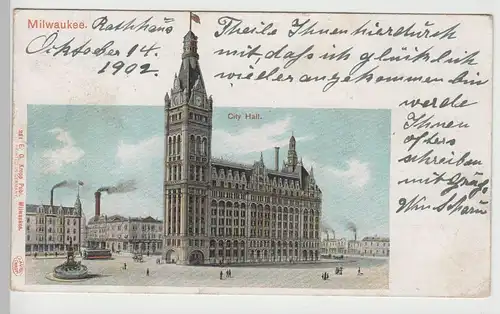 Milwaukee. Rathhaus
Ocktober 14.
1902.
Theile Ihnen hierdurch
mit, dass ich glücklich
wieder angekommen bin
werde
Ihnen
ofters
schreiben
mit Gruss
Wm
City Hall.
E. C. Kropp, Publ. Milwaukee.